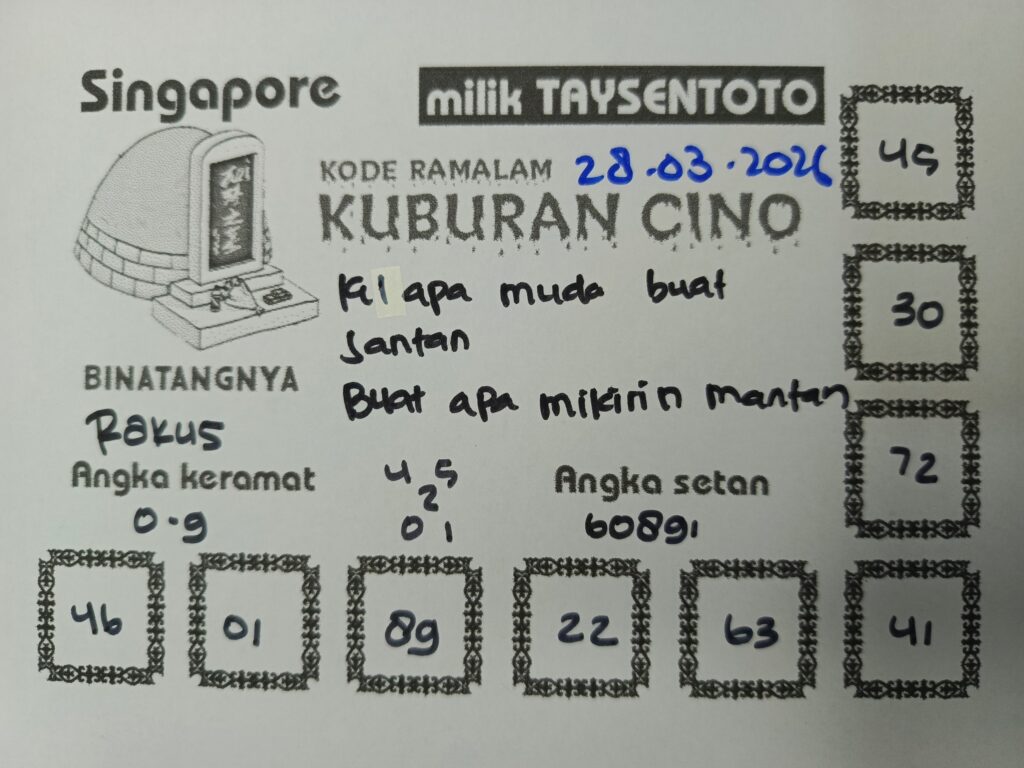 Singapore
milik TAYSENTOTO
KODE RAMALAM 28.03.2026
KUBURAN CINO
Kelapa muda buat
santan
Buat apa mikirin mantan
BINATANGNYA
Rakus
Angka keramat
0.9
4 5
2
0 1
Angka setan
60891
45
30
72
46 01 89 22 63 41